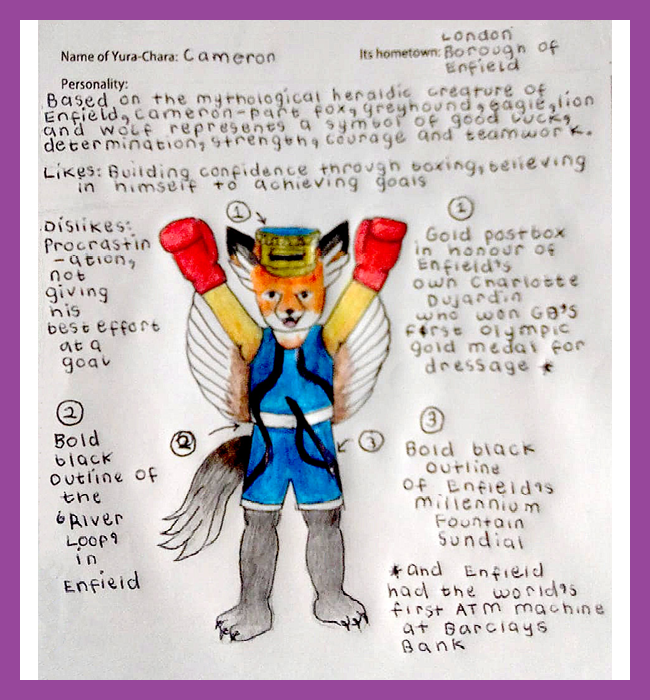 Name of Yura-Chara: Cameron
Its hometown: London
Borough of
Enfield
Personality:
Based on the mythological heraldic creature of
Enfield, Cameron-part fox, greyhound, eagle, lion
and wolf represents a symbol of good luck,
determination, strength, courage and teamwork.
Likes: Building confidence through boxing, believing
in himself to achieving goals
Dislikes:
Procrastin
-ation,
not
giving
his
best effort
at a
goal
1
1
Gold postbox
in honour of
Enfield's
own Charlotte
Dujardin
who won GB'S
first Olympic
gold medal for
dressage *
2
Bold
black
outline of
the
'River
Loop'
in
Enfield
2
3
3
Bold black
outline
of Enfield's
millennium
Fountain
Sundial
*and Enfield
had the world's
first ATM machine
at Barclays
Bank